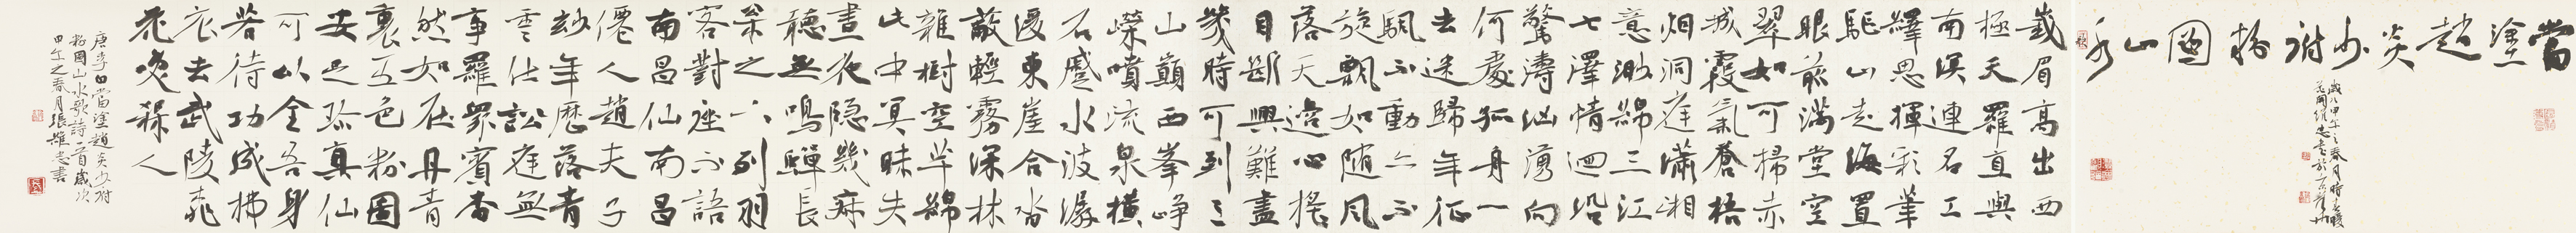 當塗趙炎少府粉圖山水
峩眉高出西
極天羅直與
南溟連名工
繹思揮彩筆
驅山走海置
眼前滿堂空
翠如可掃赤
城霞氣蒼梧
烟洞庭瀟湘
意渺綿三江
七澤情洄沿
驚濤汹湧向
何處孤舟一
去迷歸年征
帆不動亦不
旋飄如随風
落天邊心摇
目斷興難盡
幾時可到三
山巔西峯崢
嶸噴流泉橫
石蹙水波潺
湲東崖合沓
蔽輕霧深林
雜樹空芊綿
此中冥昧失
晝夜隐幾寂
聽無鳴蟬長
松之下列羽
客對座不語
南昌仙南昌
僊人趙夫子
妙年歷落青
雲仕訟庭無
事羅眾賓杳
然如在丹青
裏五色粉圖
安足珍真仙
可以全吾身
若待功成拂
衣去武陵桃
花笑殺人
唐李白當塗趙炎少府
粉圖山水歌詩一首歲次
甲午之春月張忠書